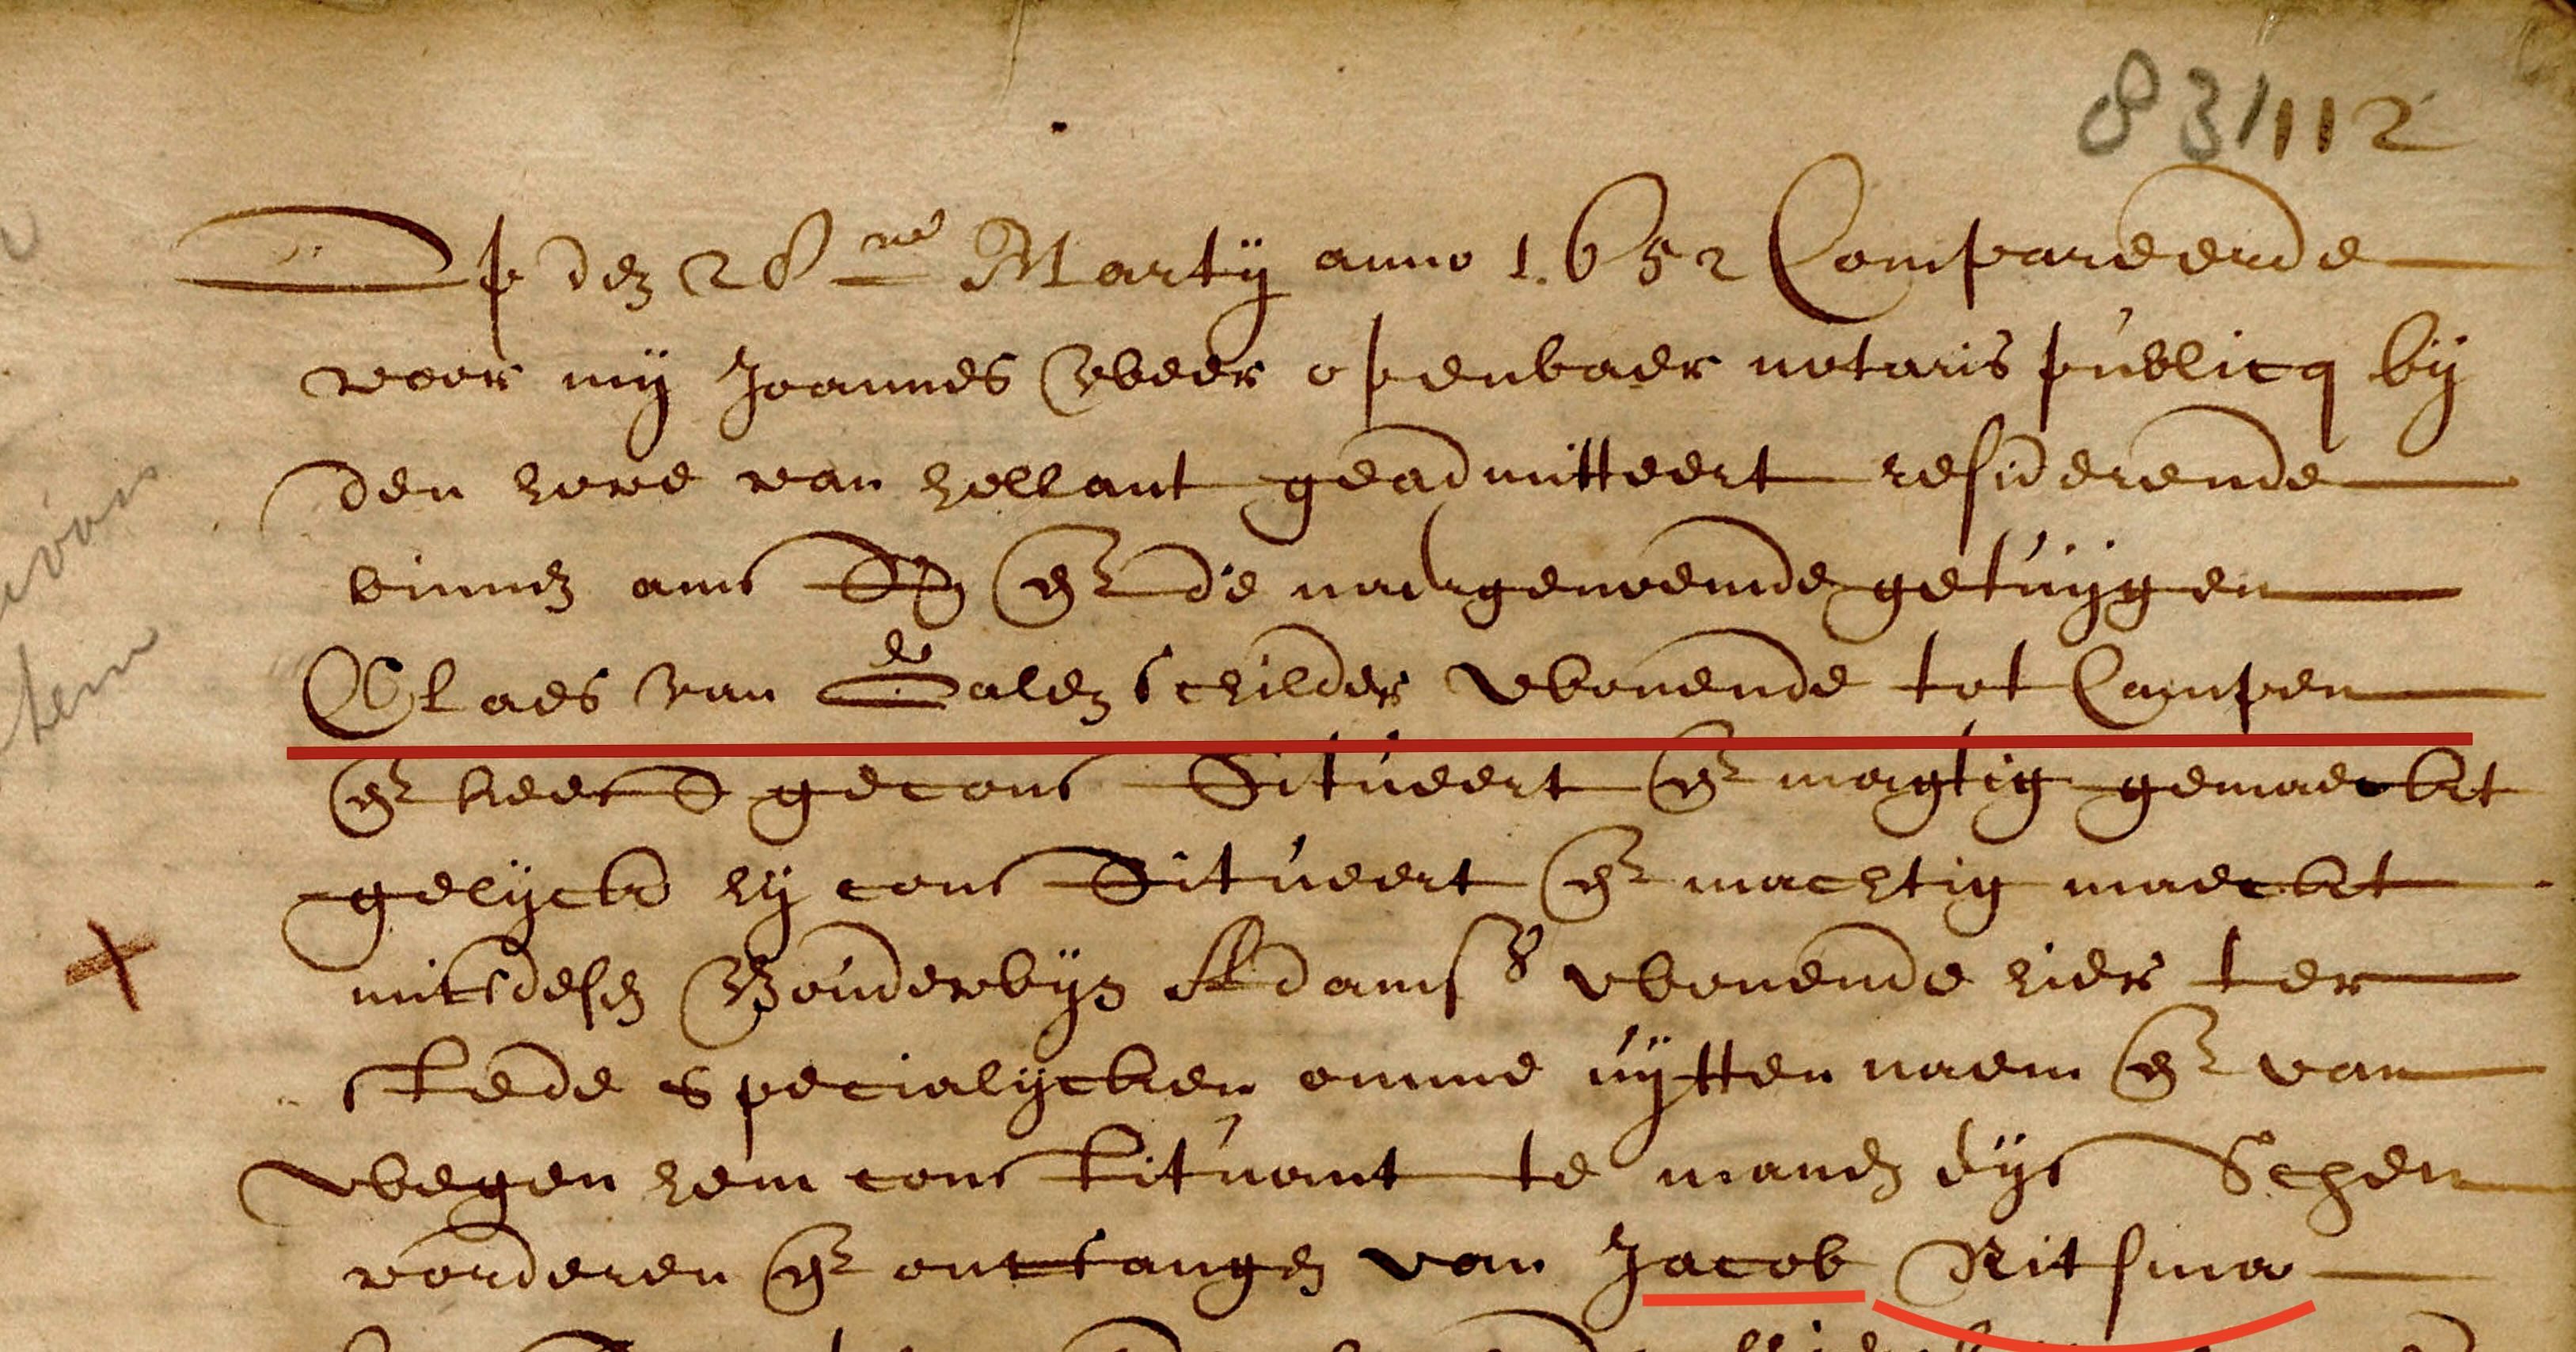 83/112
Op den 28ne Martij anno 1652 Compareerde
voor mij Joannes Weer openbaer notaris publicq bij
den hove van hollant geadmitteert residerende
binnen ams D en de naergenoemde getuijgen
Claes van de Dalen schilder wonende tot Campen
en heeft geconstitueert en magtig gemaeckt
gelijck hij constitueert en machtig maeckt
mitsdesen Bouderwijn Adams wonende hier ter
stede specialijcken omme uijtten naem en van
wegen hem constituant te manen eijsschen
vorderen en ontfangen van Jacob Ritsma